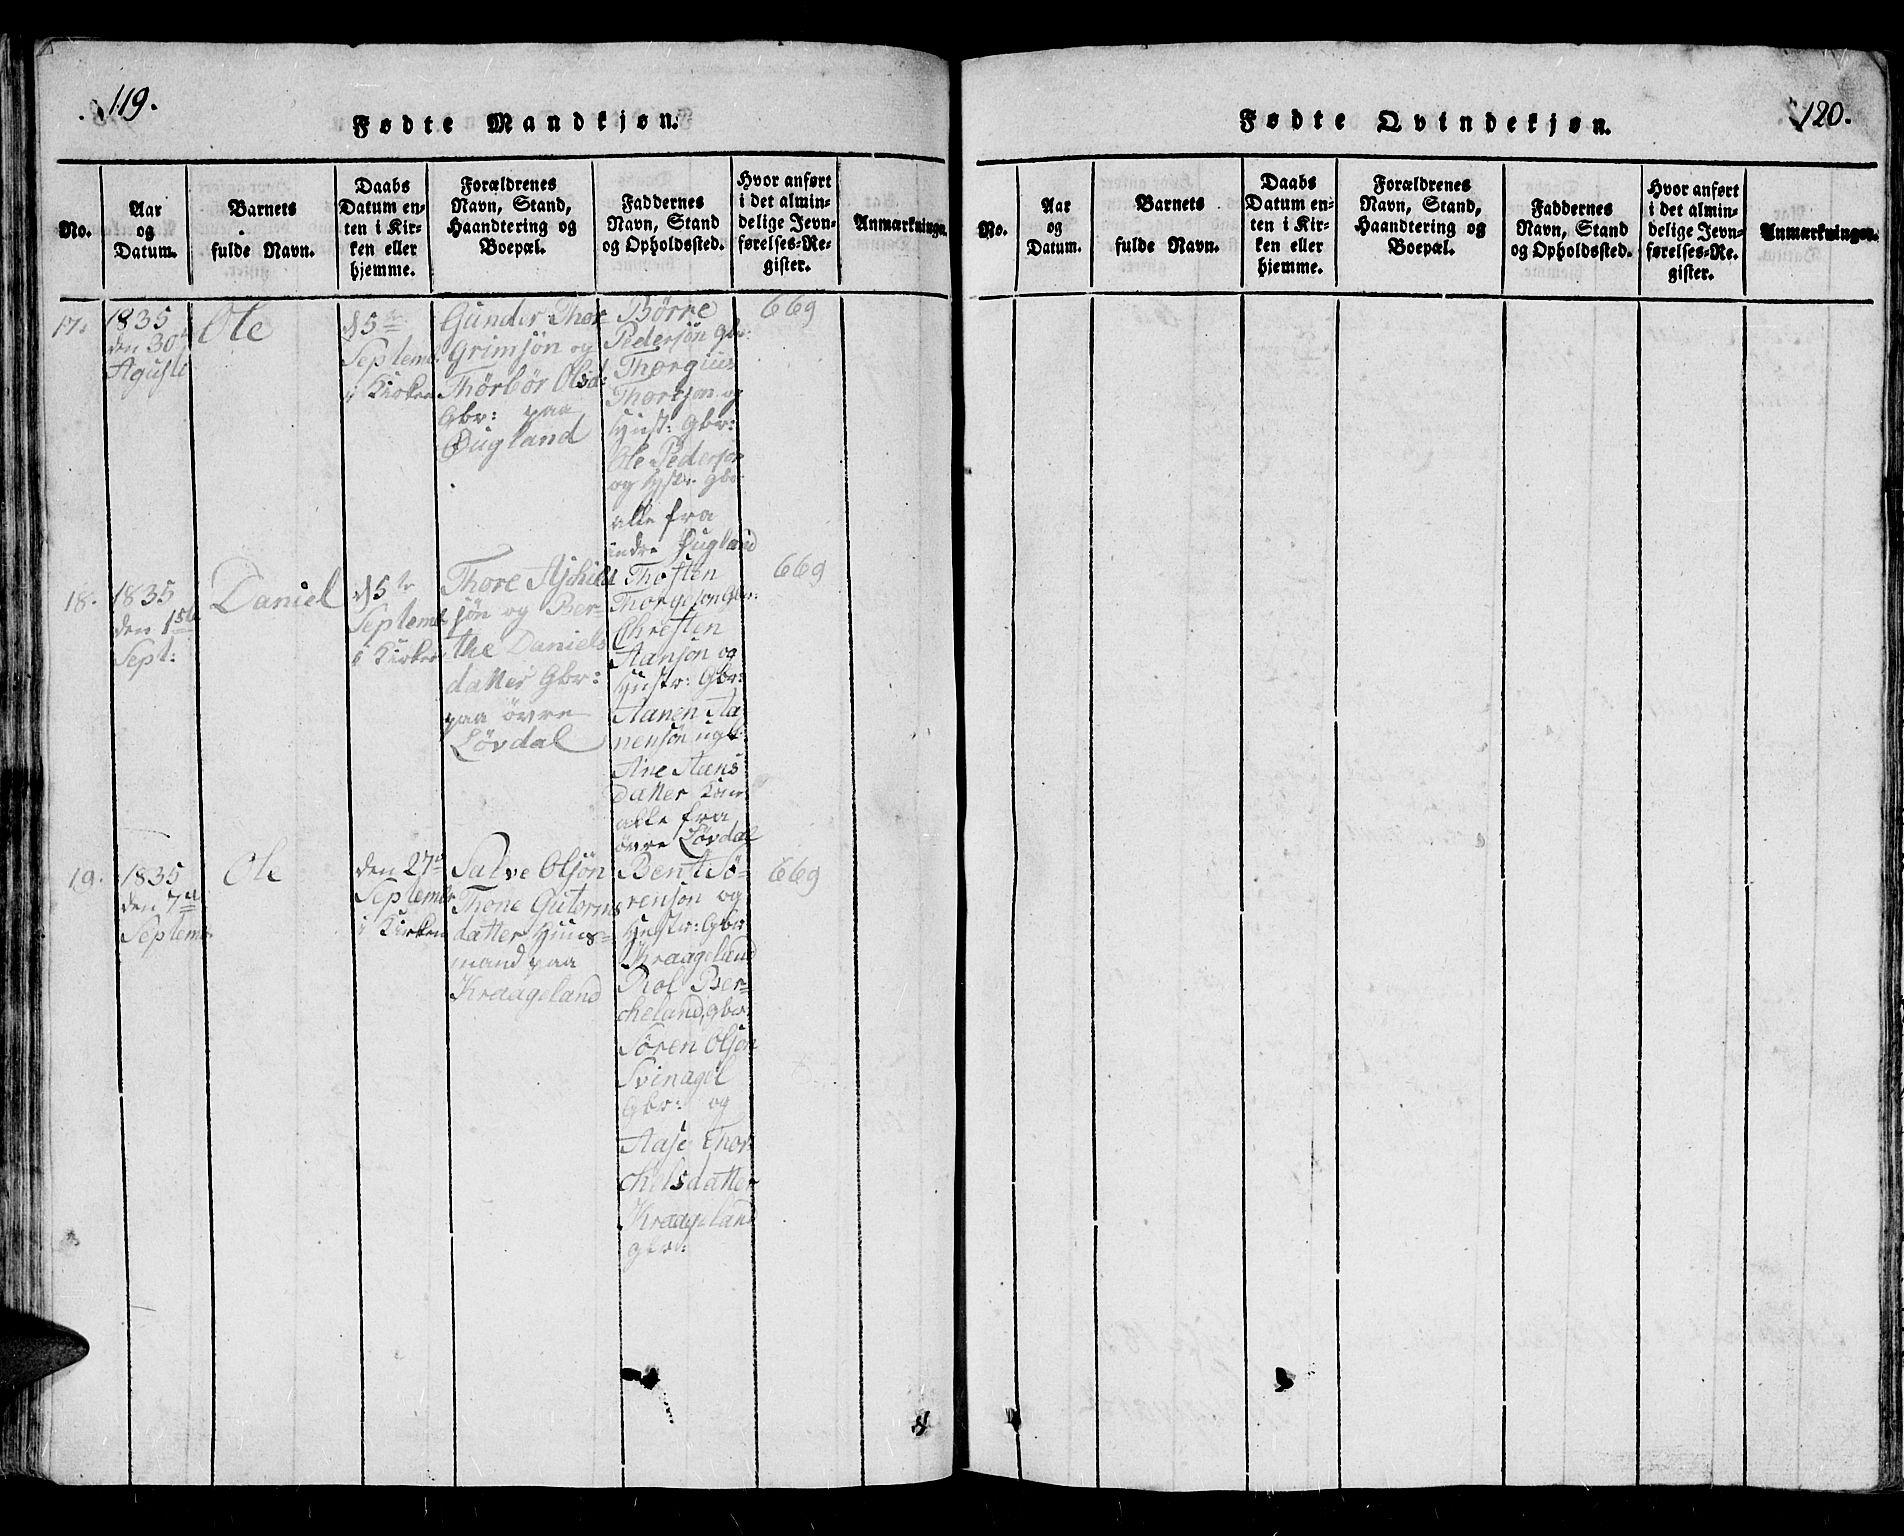 119.
Fødte Mandkjøn.
No.
Aar
og
Datum.
Barnets
fulde Navn.
Daabs
Datum en-
ten i Kir-
ken eller
hjemme.
Forældrenes
Navn, Stand,
Haandtering og
Boepæl.
Faddernes
Navn, Stand
og Opholdssted.
Hvor anført
i det almin-
delige Jevn-
førelses-Re-
gister.
Anmærkninger.
17.
1835
den 30te
Agusti
Ole
15te
Septemb
i Kirken
Gunder Thor
Grimsøn og
Thørbør Olsd:
Gbr: paa
Øugland
Børre
Pedersøn Gbr:
Thorgius
Thorsøn og
Hust: Gbr:
Ole Pedersøn
og Hstr Gbr
alle fra
indre Øugland
669
18.
1835
den 1ste
Sept:
Daniel
15te
Septemb
i Kirken
Thore Aschild
søn og Ber-
the Daniels
datter Gbr:
paa øvre
Løvdal
Thosten
Thorgeson Gbr:
Chresten
Hansøn og
Hustr: Gbr:
Aanen Aa-
nensøn ugt:
Ane Hans
datter Kone
alle fra
øvre Løvdal
669
19.
1835
den 7da
Septemb
Ole
den 27de
Septembr
i Kirken
Salve Olsøn
Thone Gutorms
datter Huus-
mand paa
Kraageland
Bent Sö-
rensøn og
Hustr: Gbr
Kraageland
Rol Ber-
cheland, gbr:
Søren Olsøn
Svinagel
Gbr: og
Aase Thor
chelsdatter
Kraageland
gbr:
669
120.
Fødte Qvindekjøn.
No.
Aar
og
Datum.
Barnets
fulde Navn.
Daabs
Datum en-
ten i Kir-
ken eller
hjemme.
Forældrenes
Navn, Stand,
Haandtering og
Boepæl.
Faddernes
Navn, Stand
og Opholdssted.
Hvor anført
i det almin-
delige Jevn-
førelses-Re-
gister.
Anmærkninger.